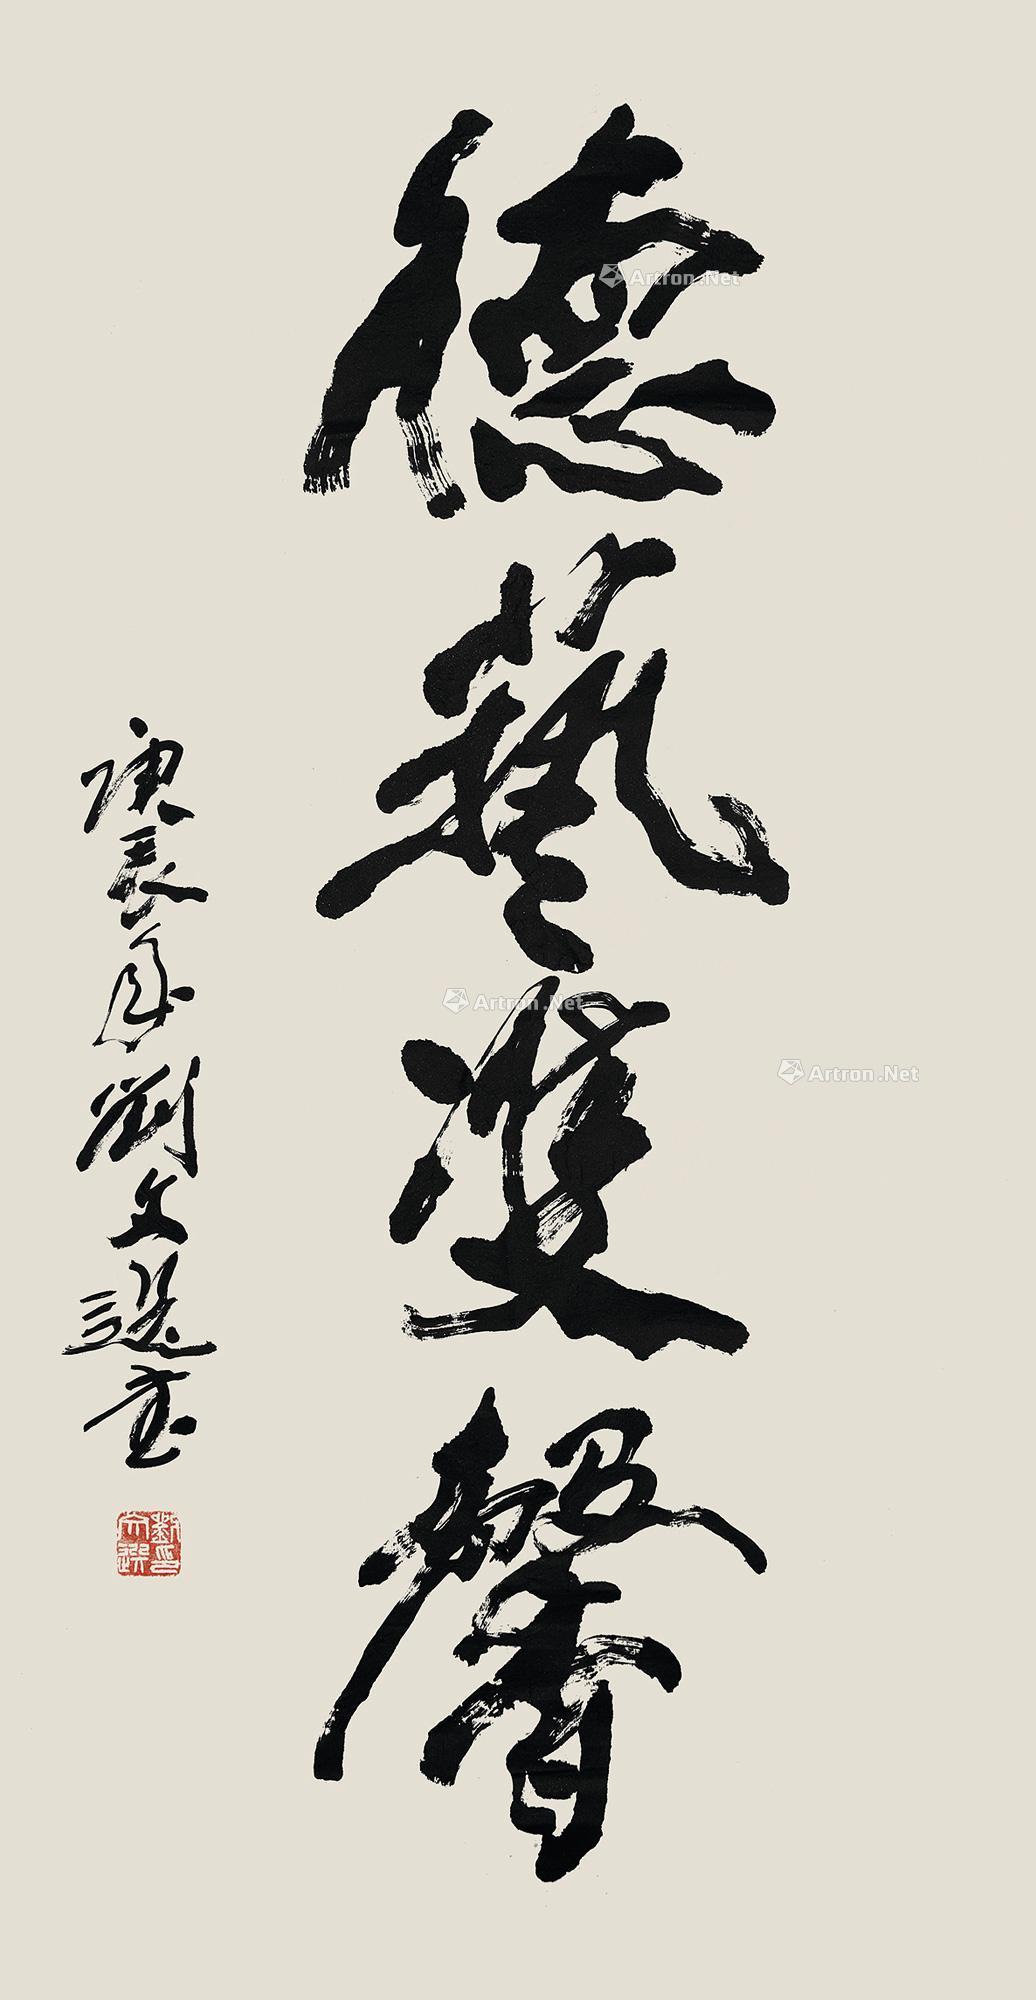 德藝雙馨
庚辰年劉文選書
劉文選印
Artron.Net
Artron.Net
Artron.Net